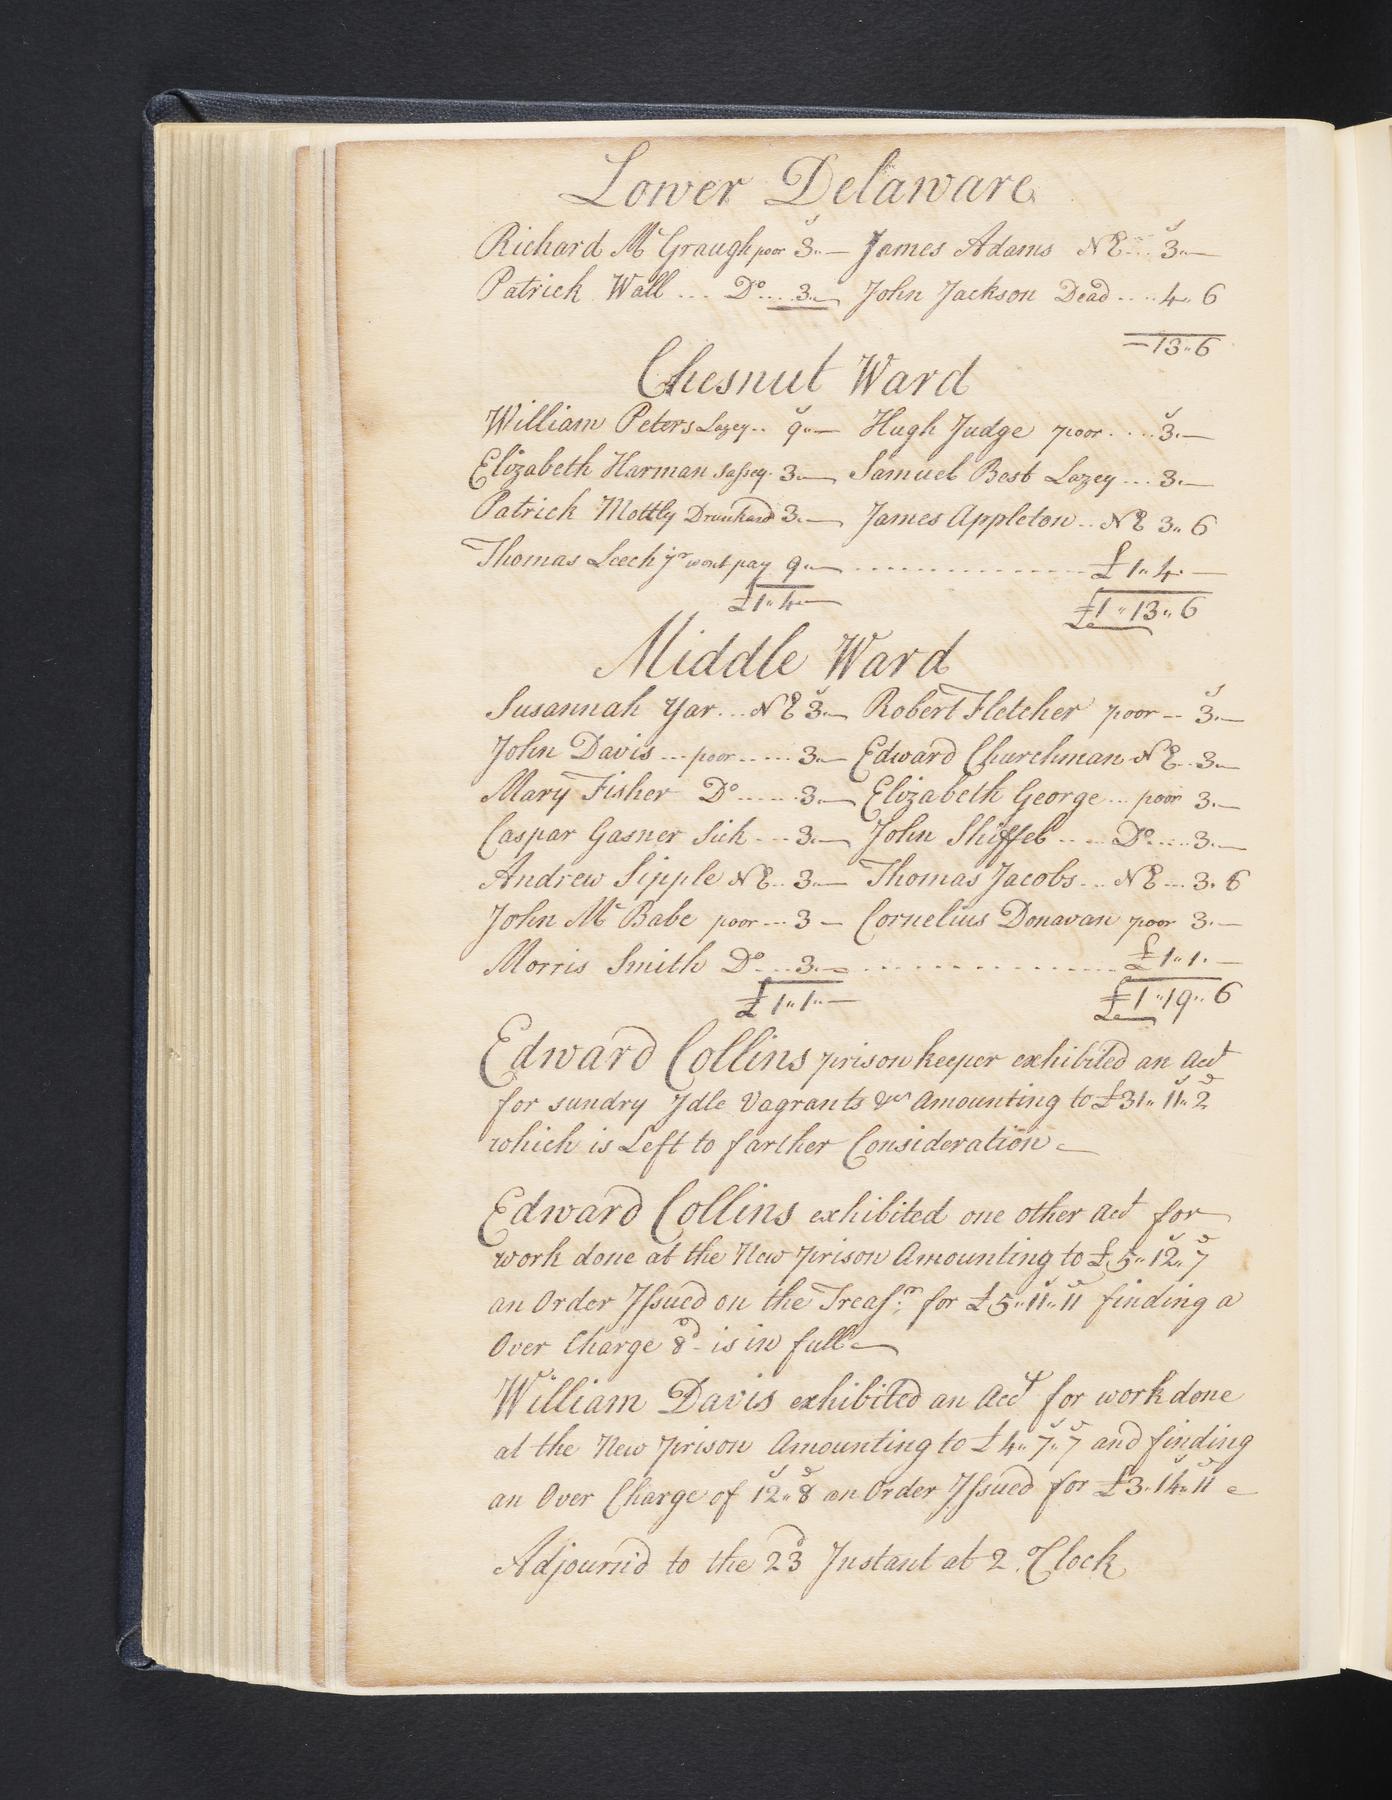 Lower Delaware
Richard Mc Graugh poor 3s.. — James Adams NE... 3s.. —
Patrick Wall ... Do .... 3.. — John Jackson Dead .... 4.. 6
— 13.. 6
Chesnut Ward
William Peters Lazey .. 9s.. — Hugh Judge poor .... 3s.. —
Elizabeth Harman Sassey. 3.. — Samuel Best Lazey ... 3.. —
Patrick Mottly Drunkard 3.. — James Appleton .. NE 3.. 6
Thomas Leech jr wont pay 9.. — £1.. 4.. —
£1.. 4.. — £1.. 13.. 6
Middle Ward
Susannah Yar ... NE 3s.. — Robert Fletcher poor — 3s.. —
John Davis ... poor ..... 3.. — Edward Churchman NE.. 3.. —
Mary Fisher Do ...... 3.. — Elizabeth George ... poor 3.. —
Caspar Gasner Sick ... 3.. — John Shiffel .... Do .... 3.. —
Andrew Sipple NE.. 3.. — Thomas Jacobs ... NE ... 3.. 6
John Mc Babe poor ... 3 — Cornelius Donavan poor 3.. —
Morris Smith Do ... 3.. — £1.. 1.. —
£1.. 1.. — £1.. 19.. 6
Edward Collins prison keeper exhibited an acct
for sundry Idle Vagrants &ca Amounting to £31.. 11s.. 2d
which is Left to farther Consideration
Edward Collins exhibited one other acct for
work done at the New prison Amounting to £5.. 12s.. 7d
an Order Issued on the Treasr. for £5.. 11s.. 11d finding a
Over Charge 8d - is in full
William Davis exhibited an acct for work done
at the New prison Amounting to £4.. 7s.. 7d and finding
an Over Charge of 12s.. 8d an Order Issued for £3.. 14s.. 11d
Adjourn'd to the 23d Instant at 2 . O'Clock